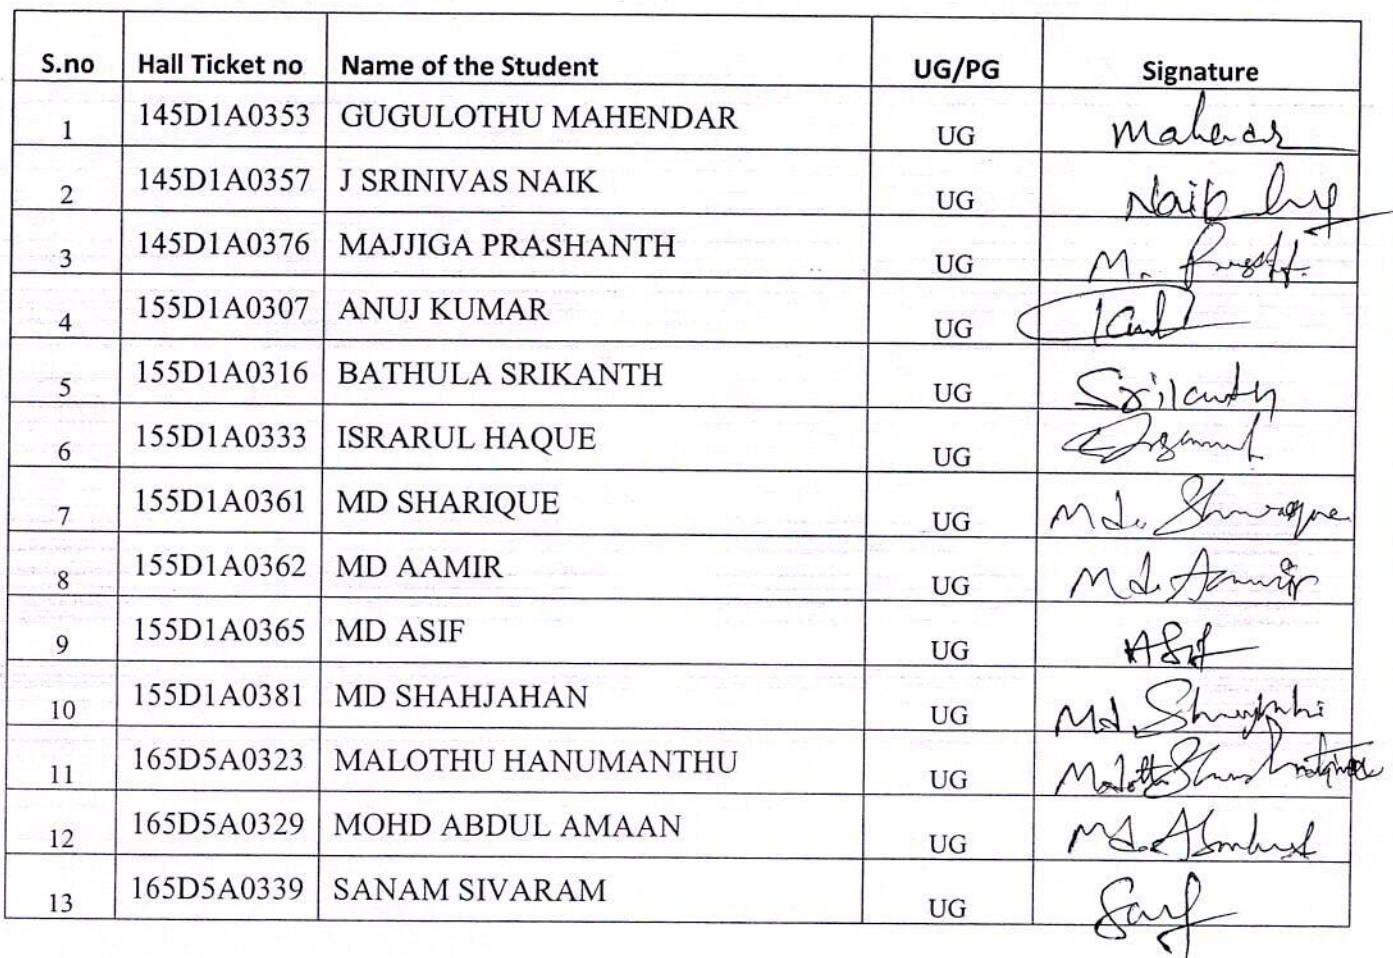 S.no Hall Ticket no Name of the Student UG/PG Signature
1 145D1A0353 GUGULOTHU MAHENDAR UG Mahendar
2 145D1A0357 J SRINIVAS NAIK UG Naik
3 145D1A0376 MAJJIGA PRASHANTH UG M.
4 155D1A0307 ANUJ KUMAR UG
5 155D1A0316 BATHULA SRIKANTH UG Srikanth
6 155D1A0333 ISRARUL HAQUE UG
7 155D1A0361 MD SHARIQUE UG Md. Sharique
8 155D1A0362 MD AAMIR UG Md. Aamir
9 155D1A0365 MD ASIF UG ASif
10 155D1A0381 MD SHAHJAHAN UG Md.
11 165D5A0323 MALOTHU HANUMANTHU UG
12 165D5A0329 MOHD ABDUL AMAAN UG Md.
13 165D5A0339 SANAM SIVARAM UG